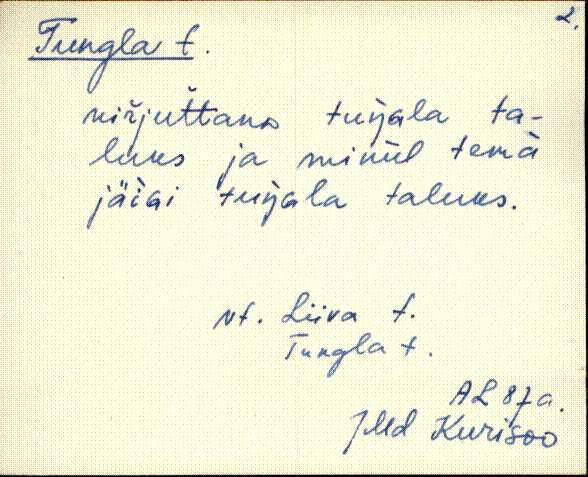 2.
Tungla t.
kiřjuttano tuŋala ta-
luks ja minul temä
jäiäi tuŋala taluks.
vt. Liiva t.
Tungla t.
AL 87a.
JMd Kurisoo